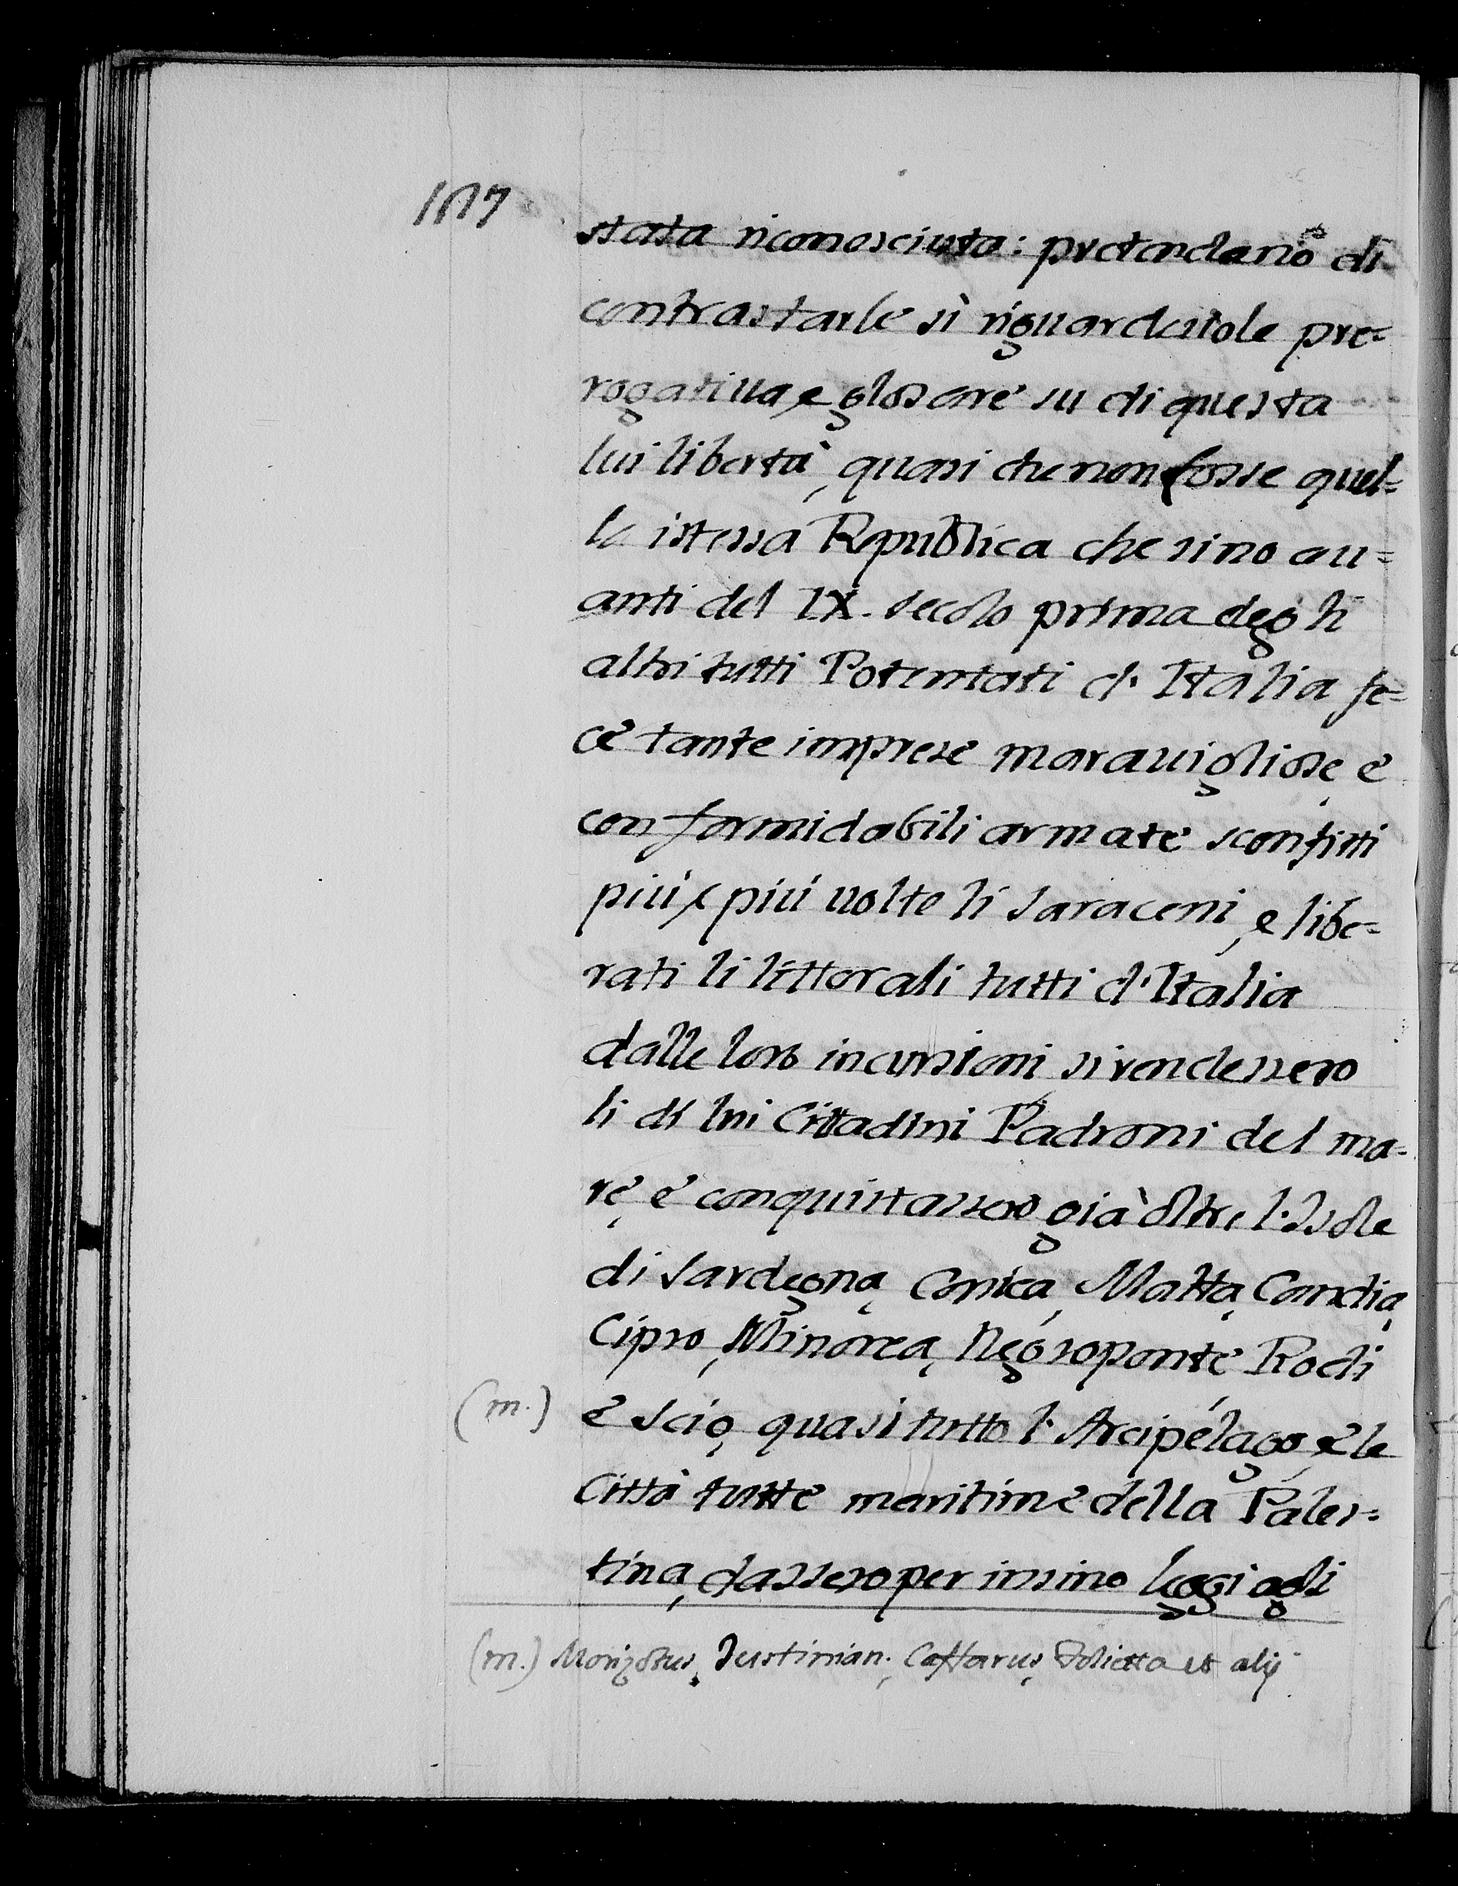 stata riconosciuta: pretendano di
contrastarle sì riguardevole pre=
rogativa, e glosare su di questa
lui libertà, quasi che non fosse quel=
la istessa Republica che sino au=
anti del IX. secolo prima degli
altri tutti Potentati d'Italia fe=
ce tante imprese marauigliose, e
con formidabili armate sconfitti
più, e più uolte li Saraceni, e libe=
rati li littorali tutti d'Italia
dalle loro incursioni si rendessero
li di lui Cittadini Padroni del ma=
re, e conquistassero già oltre l'Isole
di Sardegna, Corsica, Malta, Candia,
Cipro, Minorca, Negroponte Rodi
(m.) e Scio, quasi tutto l'Arcipélago, e le
Città tutte maritime della Pales=
tina, dassero per insino leggi agli
(m.) Justinian., Caffarus, Folietta et alij